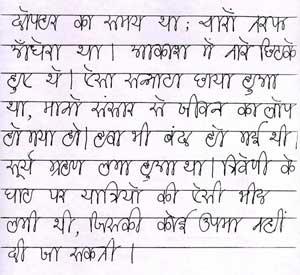 दोपहर का समय था; चारों तरफ
अँधेरा था। आकाश में तारे छिटके
हुए थे। ऐसा सन्नाटा छाया हुआ
था, मानो संसार से जीवन का लोप
हो गया हो। हवा भी बंद हो गई थी।
सूर्य ग्रहण लगा हुआ था। त्रिवेणी के
घाट पर यात्रियों की ऐसी भीड़
लगी थी, जिसकी कोई उपमा नहीं
दी जा सकती।